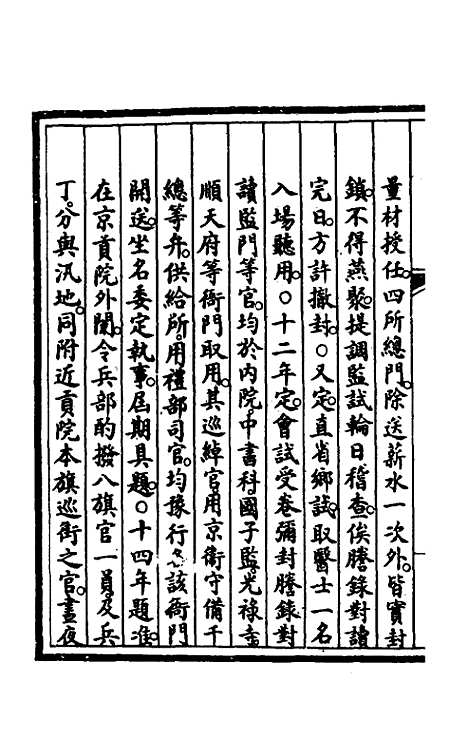 量材授任。四所總門。除送薪水一次外。皆實封
鎖。不得燕聚。提調監試輪日稽查。俟謄錄對讀
完日。方許撤封。○又定。直省鄉試。取醫士一名
入場聽用。○十二年定。會試受卷彌封謄錄對
讀監門等官。均於內院。中書科。國子監。光祿寺
順天府等衙門取用。其巡綽官。用京衛守備千
總等弁。供給所。用禮部司官。均豫行各該衙門
開送。坐名委定執事。屆期具題。○十四年題准。
在京貢院外圍。令兵部酌撥八旗官一員。及兵
丁。分與汛地。同附近貢院本旗巡街之官。晝夜